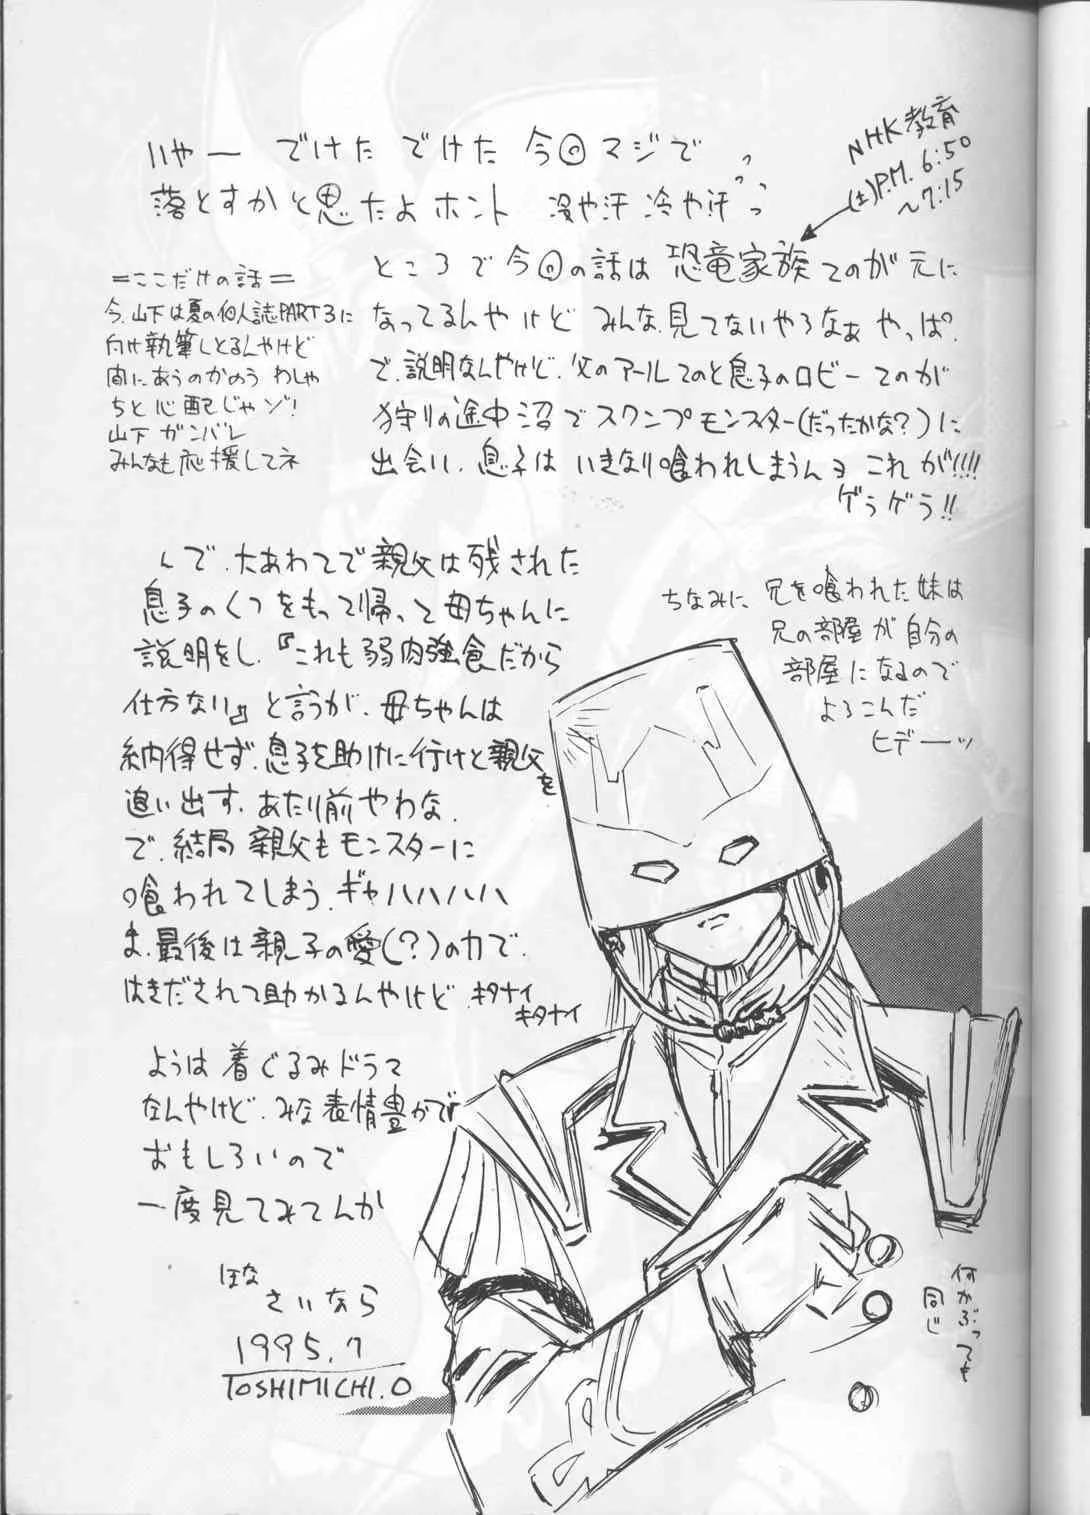 いやー でけた でけた 今回マジで
落とすかと思たよホント 冷や汗 冷や汗
NHK教育
(土)P.M. 6:50
～7:15
ところで今回の話は 恐竜家族てのが元に
なってるんやけど みんな見てないやろなぁ やっぱ。
で、説明なんやけど、父のアールてのと息子のロビーてのが
狩りの途中沼でスワンプモンスター(だったかな?)に
出会い、息子はいきなり喰われしまうんヨ これが!!!!
ゲラゲラ!!
=ここだけの話=
今、山下は夏の個人誌PART3に
向け執筆しとるんやけど
間にあうのかのう わしゃ
ちと心配じゃゾ!
山下 ガンバレ
みんなも応援してネ
んで、大あわてで親父は残された
息子のくつをもって帰って母ちゃんに
説明をし、『これも弱肉強食だから
仕方ない』と言うが、母ちゃんは
納得せず、息子を助けに行けと親父を
追い出す、あたり前やわな、
で、結局 親父もモンスターに
喰われてしまう、ギャハハハハハ
ま、最後は親子の愛(?)の力で、
はきだされて助かるんやけど キタナイ
キタナイ
ちなみに 兄を喰われた妹は
兄の部屋が自分の
部屋になるので
よろこんだ
ヒデーッ
ようは着ぐるみドラマ
なんやけど、みな表情豊かで
おもしろいので
一度見てみてんか
ほな
さいなら
1995.7
TOSHIMICHI.O
何かぶっても
同じ